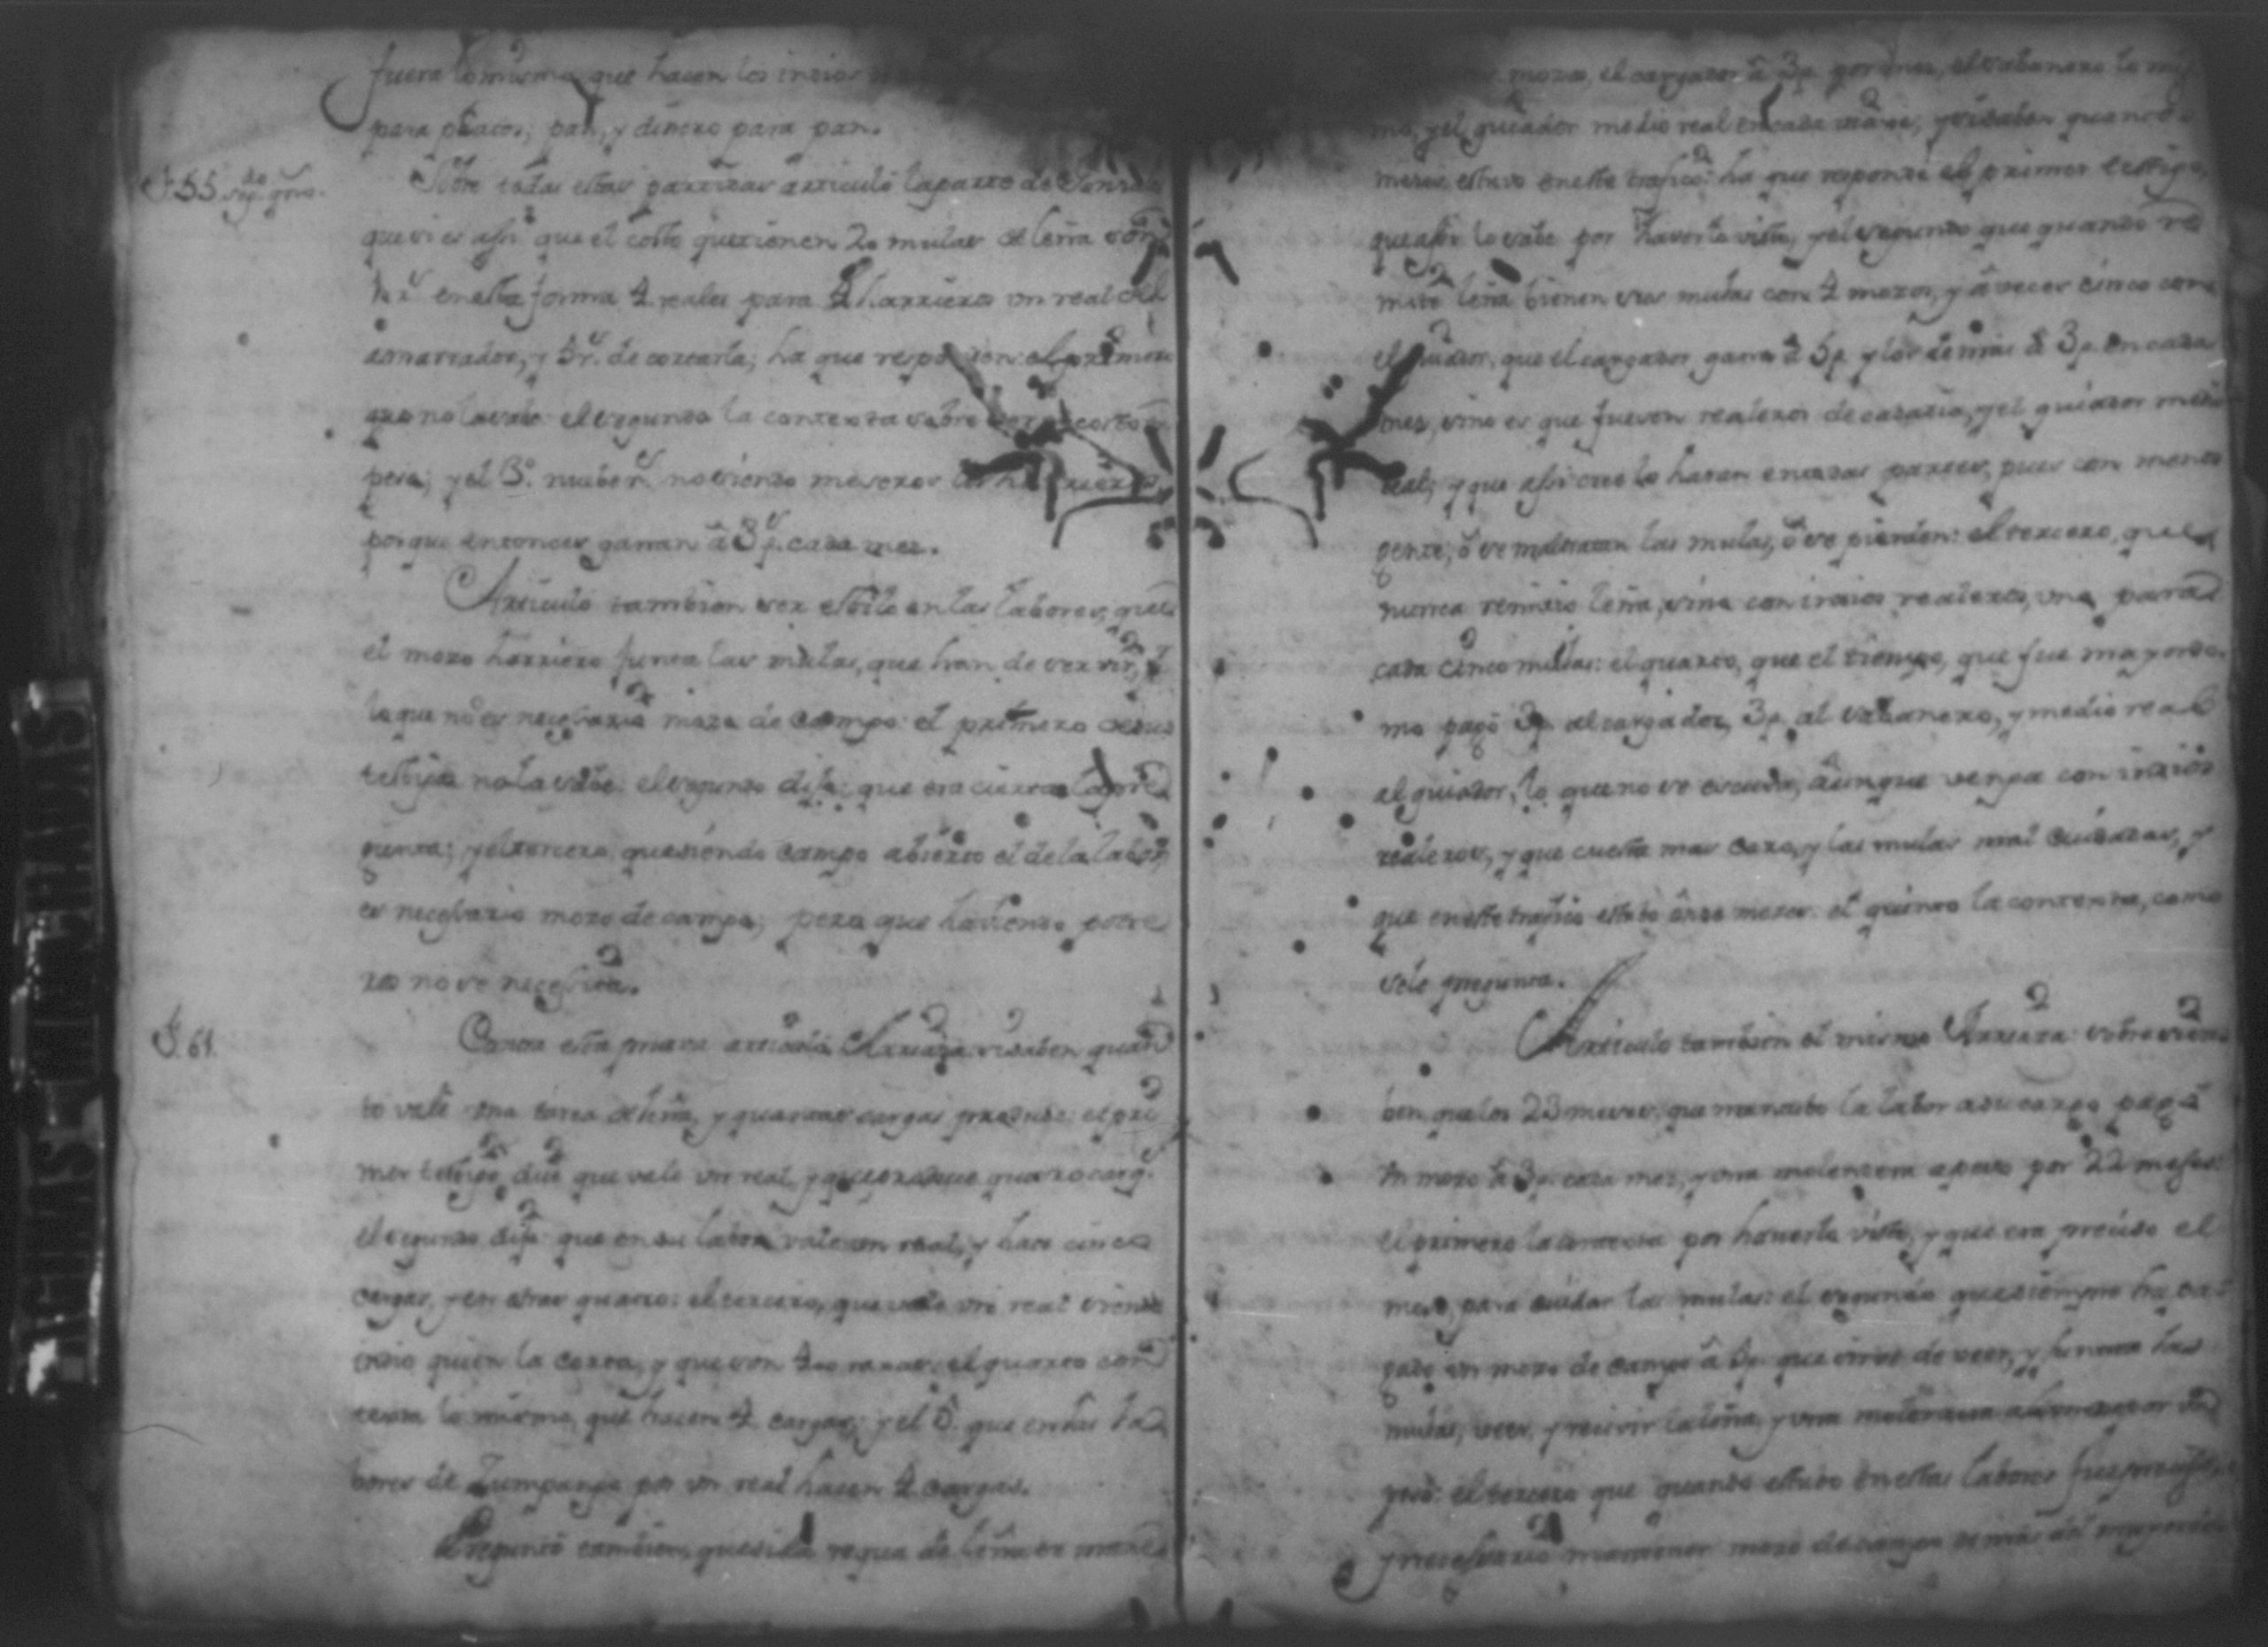 fuera lo mismo que hacen los indios
para platos; pan, y dinero para pan.
F. 55. seg.do qno.
Sobre todas estas partidas articulò la parte de
que si es assi que el costo que tienen 20 mulas de leña son
en esta forma 4 reales para 4 harrieros un real del
amarrador, y 5 r.s de cortarla; ha que responden: el primero
que no lo sabe: el segundo la contexta sobre
pesa; y el 3.º nuebe r.s no siendo meseros los harrieros
porque entonces ganan â 3 p.s cada mes.
Articulò tambien ser estilo en las labores, que
el mozo harriero junta las mulas, que han de servir, y
lo que no es necessario mozo de campo: el primero de sus
testigos no la sabe: el segundo dijo: que era cierta la pre
gunta; y el tercero, que siendo campo abierto el de la labor,
es necessario mozo de campo; pero que haviendo potre
ro no se necessita.
F. 61.
Contra esta prueva articulò Arriaza si saben quan
to vale una tarea de leña, y quantas cargas produce: el pri
mer testigo dijo que vale un real, y que produce quatro carg.s
el segundo dijo que en su labor vale un real, y hace cinco
cargas, y en otras quatro: el tercero, que vale un real siendo
indio quien la corta, y que son 400 rajas: el quarto con
texta lo mismo, que hacen 4 cargas; y el 5.º que en las la
bores de Zumpango por un real hacen 4 cargas.
Preguntò tambien, que si la requa de leña se mane
mozos, el cargador â 3 p. por mes, el sabanero lo mis
mo, y el guiador medio real en cada viage; y si saben quando
meses estuvo en este trafico: ha que responde el primer testigo,
que assi lo sabe por haverlo visto, y el segundo que quando re
mitiò leña bienen sus mulas con 4 mozos, y â veces cinco con
el guiador, que el cargador gana â 5 p. y los demas â 3 p. en cada
mes, sino es que fuesen realeros de cada dia, y el guiador medio
real; y que assi creo lo haran en todas partes, pues con menos
gente, ô se maltratan las mulas, ô se pierden: el tercero, que
nunca remitio leña, sino con indios realeros, uno para
cada cinco mulas: el quarto, que el tiempo, que fue mayordo
mo pagò 3 p. al cargador, 3 p. al sabanero, y medio real
al guiador, lo que no se escusa, âunque venga con indios
realeros, y que cuesta mas caro, y las mulas mal cuidadas, y
que en este trafico estubo onze meses: el quinto la contexta, como
se le pregunta.
Articulò tambien el mismo Arriaza: sobre si sa
ben que los 23 meses, que mantubo la labor a su cargo pagò
un mozo â 3 p. cada mes, y una molendera a peso por 22 meses:
el primero la contexta por haverlo visto, y que era preciso el
mozo, para cuidar las mulas: el segundo que siempre ha pa
gado un mozo de campo â 3 p. que sirve de veer, y juntar las
mulas, veer, y recivir la leña, y una molendera
peso: el tercero que quando estubo en estas labores fue preciso,
y necessario mantener mozo de campo demas del mayordo